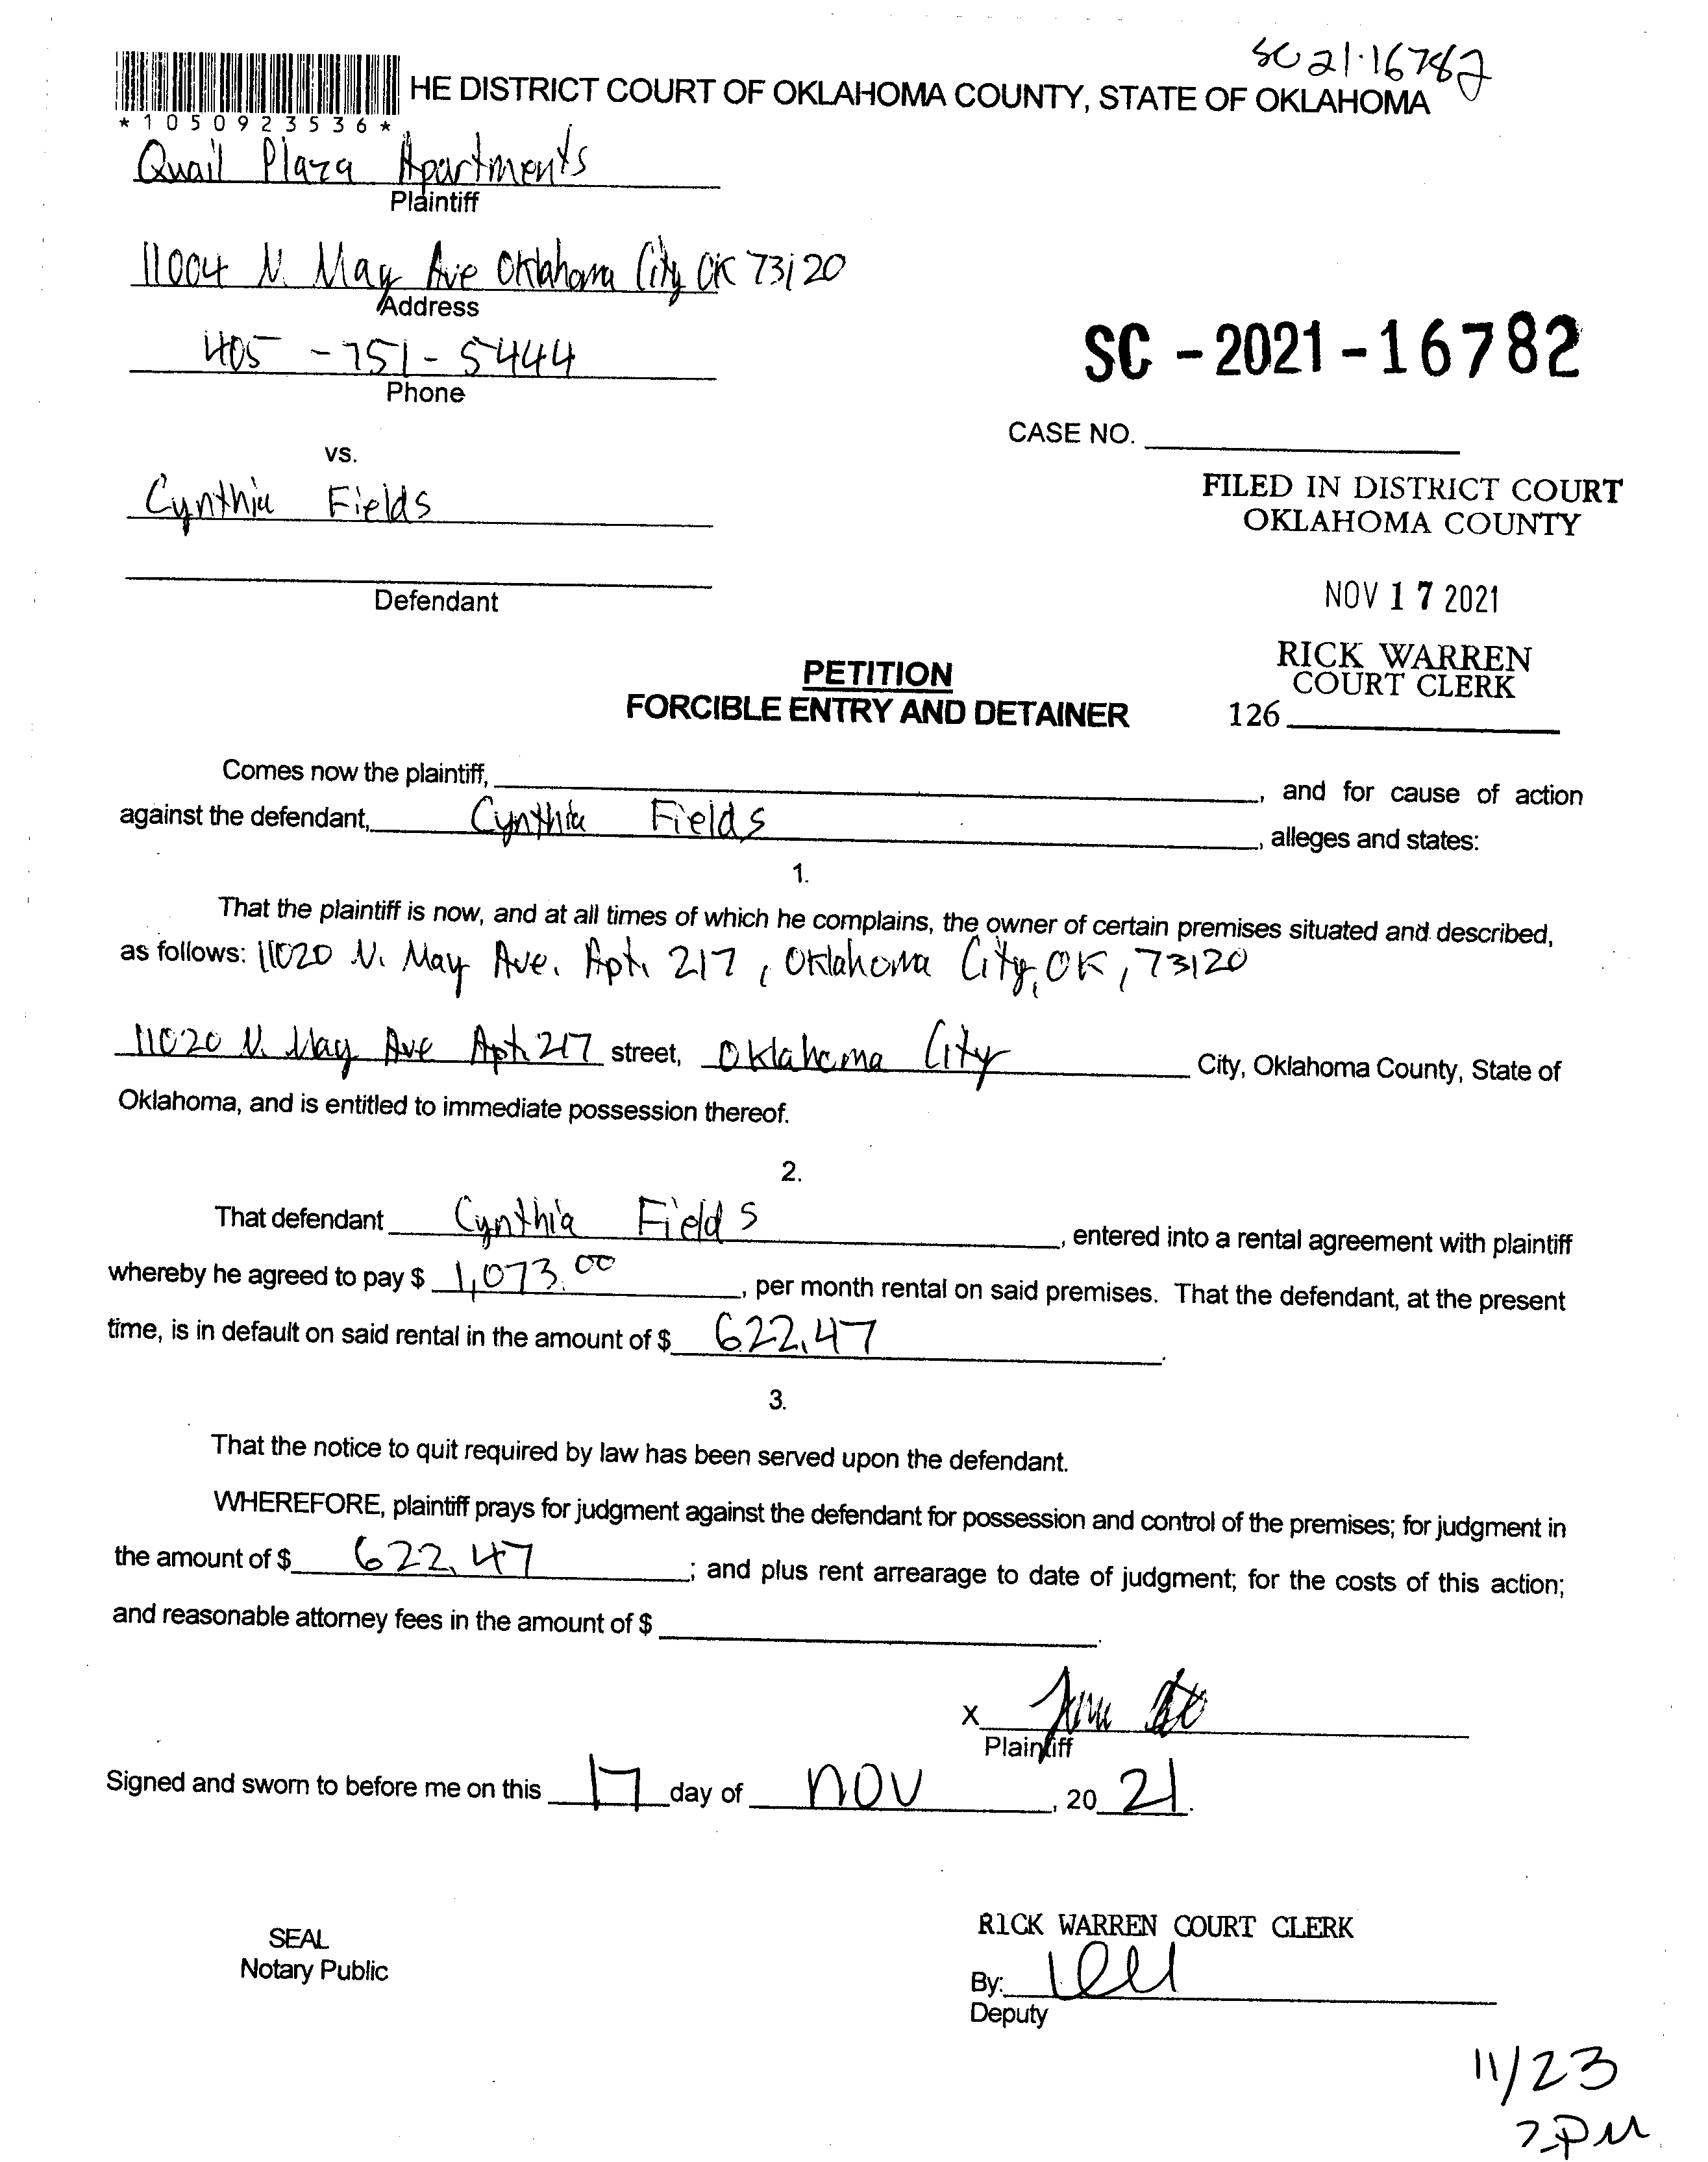 SC 21-16782
HE DISTRICT COURT OF OKLAHOMA COUNTY, STATE OF OKLAHOMA
* 1 0 5 0 9 2 3 5 3 6 *
Quail Plaza Apartments
Plaintiff
11004 N. May Ave Oklahoma City OK 73120
Address
405-751-5444
Phone
SC - 2021 - 16782
CASE NO.
vs.
Cynthia Fields
FILED IN DISTRICT COURT
OKLAHOMA COUNTY
Defendant
NOV 17 2021
RICK WARREN
COURT CLERK
126
PETITION
FORCIBLE ENTRY AND DETAINER
Comes now the plaintiff, , and for cause of action
against the defendant, Cynthia Fields , alleges and states:
1.
That the plaintiff is now, and at all times of which he complains, the owner of certain premises situated and described,
as follows: 11020 N. May Ave. Apt. 217, Oklahoma City, OK, 73120
11020 N. May Ave Apt. 217 street, Oklahoma City City, Oklahoma County, State of
Oklahoma, and is entitled to immediate possession thereof.
2.
That defendant Cynthia Fields , entered into a rental agreement with plaintiff
whereby he agreed to pay $ 1,073.00 , per month rental on said premises. That the defendant, at the present
time, is in default on said rental in the amount of $ 622.47 .
3.
That the notice to quit required by law has been served upon the defendant.
WHEREFORE, plaintiff prays for judgment against the defendant for possession and control of the premises; for judgment in
the amount of $ 622.47 ; and plus rent arrearage to date of judgment; for the costs of this action;
and reasonable attorney fees in the amount of $ .
X
Plaintiff
Signed and sworn to before me on this 17 day of nov , 20 21.
SEAL
Notary Public
RICK WARREN COURT CLERK
By:
Deputy
11/23
2PM